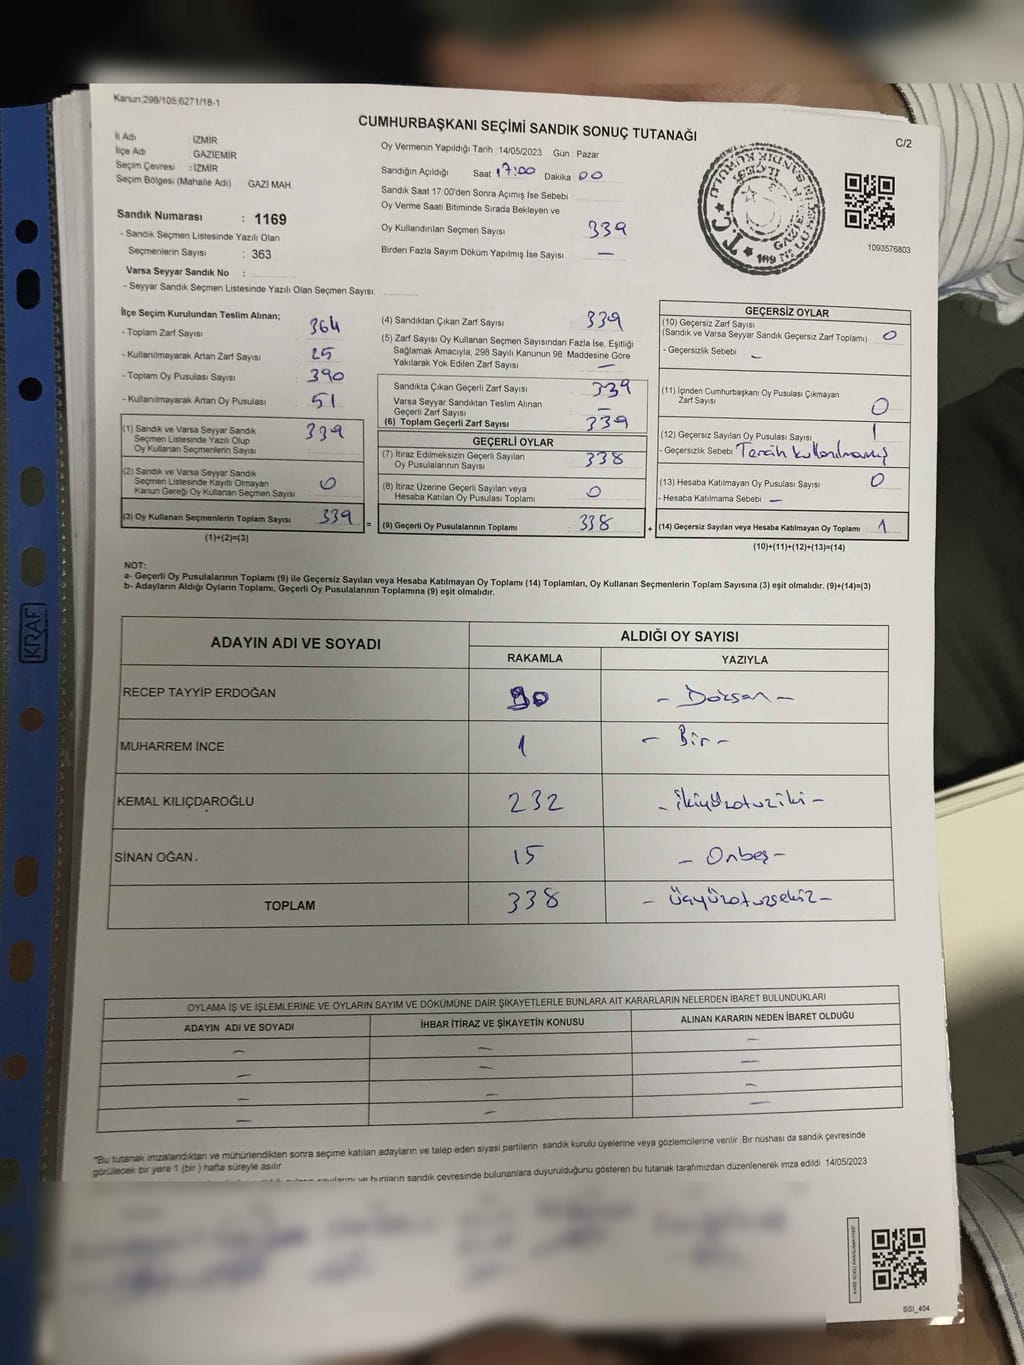 Kanun;298/105;6271/18-1
CUMHURBAŞKANI SEÇİMİ SANDIK SONUÇ TUTANAĞI
C/2
İl Adı : İZMİR
İlçe Adı : GAZİEMİR
Seçim Çevresi : İZMİR
Seçim Bölgesi (Mahalle Adı) GAZİ MAH
Sandık Numarası : 1169
- Sandık Seçmen Listesinde Yazılı Olan
Seçmenlerin Sayısı : 363
Varsa Seyyar Sandık No :
- Seyyar Sandık Seçmen Listesinde Yazılı Olan Seçmen Sayısı:
Oy Vermenin Yapıldığı Tarih : 14/05/2023 Gün : Pazar
Sandığın Açıldığı Saat 17:00 Dakika 00
Sandık Saat 17:00'den Sonra Açımış İse Sebebi
Oy Verme Saati Bitiminde Sırada Bekleyen ve
Oy Kullandırılan Seçmen Sayısı 339
Birden Fazla Sayım Döküm Yapılmış İse Sayısı —
T.C.
1093576803
İlçe Seçim Kurulundan Teslim Alınan;
- Toplam Zarf Sayısı : 364
- Kullanılmayarak Artan Zarf Sayısı : 25
- Toplam Oy Pusulası Sayısı : 390
- Kullanılmayarak Artan Oy Pusulası : 51
(1) Sandık ve Varsa Seyyar Sandık
Seçmen Listesinde Yazılı Olup
Oy Kullanan Seçmenlerin Sayısı : 339
(2) Sandık ve Varsa Seyyar Sandık
Seçmen Listesinde Kayıtlı Olmayan
Kanun Gereği Oy Kullanan Seçmen Sayısı : 0
(3) Oy Kullanan Seçmenlerin Toplam Sayısı : 339 =
(1)+(2)=(3)
(4) Sandıktan Çıkan Zarf Sayısı : 339
(5) Zarf Sayısı Oy Kullanan Seçmen Sayısından Fazla İse, Eşitliği
Sağlamak Amacıyla; 298 Sayılı Kanunun 98. Maddesine Göre
Yakılarak Yok Edilen Zarf Sayısı : —
Sandıkta Çıkan Geçerli Zarf Sayısı : 339
Varsa Seyyar Sandıktan Teslim Alınan
Geçerli Zarf Sayısı : —
(6) Toplam Geçerli Zarf Sayısı : 339
GEÇERLİ OYLAR
(7) İtiraz Edilmeksizin Geçerli Sayılan
Oy Pusulalarının Sayısı : 338
(8) İtiraz Üzerine Geçerli Sayılan veya
Hesaba Katılan Oy Pusulası Toplamı : 0
(9) Geçerli Oy Pusulalarının Toplamı : 338 +
GEÇERSİZ OYLAR
(10) Geçersiz Zarf Sayısı
(Sandık ve Varsa Seyyar Sandık Geçersiz Zarf Toplamı) : 0
- Geçersizlik Sebebi : —
(11) İçinden Cumhurbaşkanı Oy Pusulası Çıkmayan
Zarf Sayısı : 0
(12) Geçersiz Sayılan Oy Pusulası Sayısı : 1
- Geçersizlik Sebebi : Tercih kullanılmamış
(13) Hesaba Katılmayan Oy Pusulası Sayısı : 0
- Hesaba Katılmama Sebebi : —
(14) Geçersiz Sayılan veya Hesaba Katılmayan Oy Toplamı : 1
(10)+(11)+(12)+(13)=(14)
NOT:
a- Geçerli Oy Pusulalarının Toplamı (9) ile Geçersiz Sayılan veya Hesaba Katılmayan Oy Toplamı (14) Toplamları, Oy Kullanan Seçmenlerin Toplam Sayısına (3) eşit olmalıdır. (9)+(14)=(3)
b- Adayların Aldığı Oyların Toplamı, Geçerli Oy Pusulalarının Toplamına (9) eşit olmalıdır.
ADAYIN ADI VE SOYADI ALDIĞI OY SAYISI
RAKAMLA YAZIYLA
RECEP TAYYİP ERDOĞAN 90 - Doksan -
MUHARREM İNCE 1 - Bir -
KEMAL KILIÇDAROĞLU 232 - ikiyüzotuziki -
SİNAN OĞAN 15 - Onbeş -
TOPLAM 338 - Üçyüzotuzsekiz -
OYLAMA İŞ VE İŞLEMLERİNE VE OYLARIN SAYIM VE DÖKÜMÜNE DAİR ŞİKAYETLERLE BUNLARA AİT KARARLARIN NELERDEN İBARET BULUNDUKLARI
ADAYIN ADI VE SOYADI İHBAR İTİRAZ VE ŞİKAYETİN KONUSU ALINAN KARARIN NEDEN İBARET OLDUĞU
— — —
— — —
— — —
— — —
"Bu tutanak imzalandıktan ve mühürlendikten sonra seçime katılan adayların ve talep eden siyasi partilerin sandık kurulu üyelerine veya gözlemcilerine verilir. Bir nüshası da sandık çevresinde
görülecek bir yere 1 (bir) hafta süreyle asılır.
ve bunların sandık çevresinde bulunanlara duyurulduğunu gösteren bu tutanak tarafımızdan düzenlenerek imza edildi 14/05/2023
SSI_404
KRAF